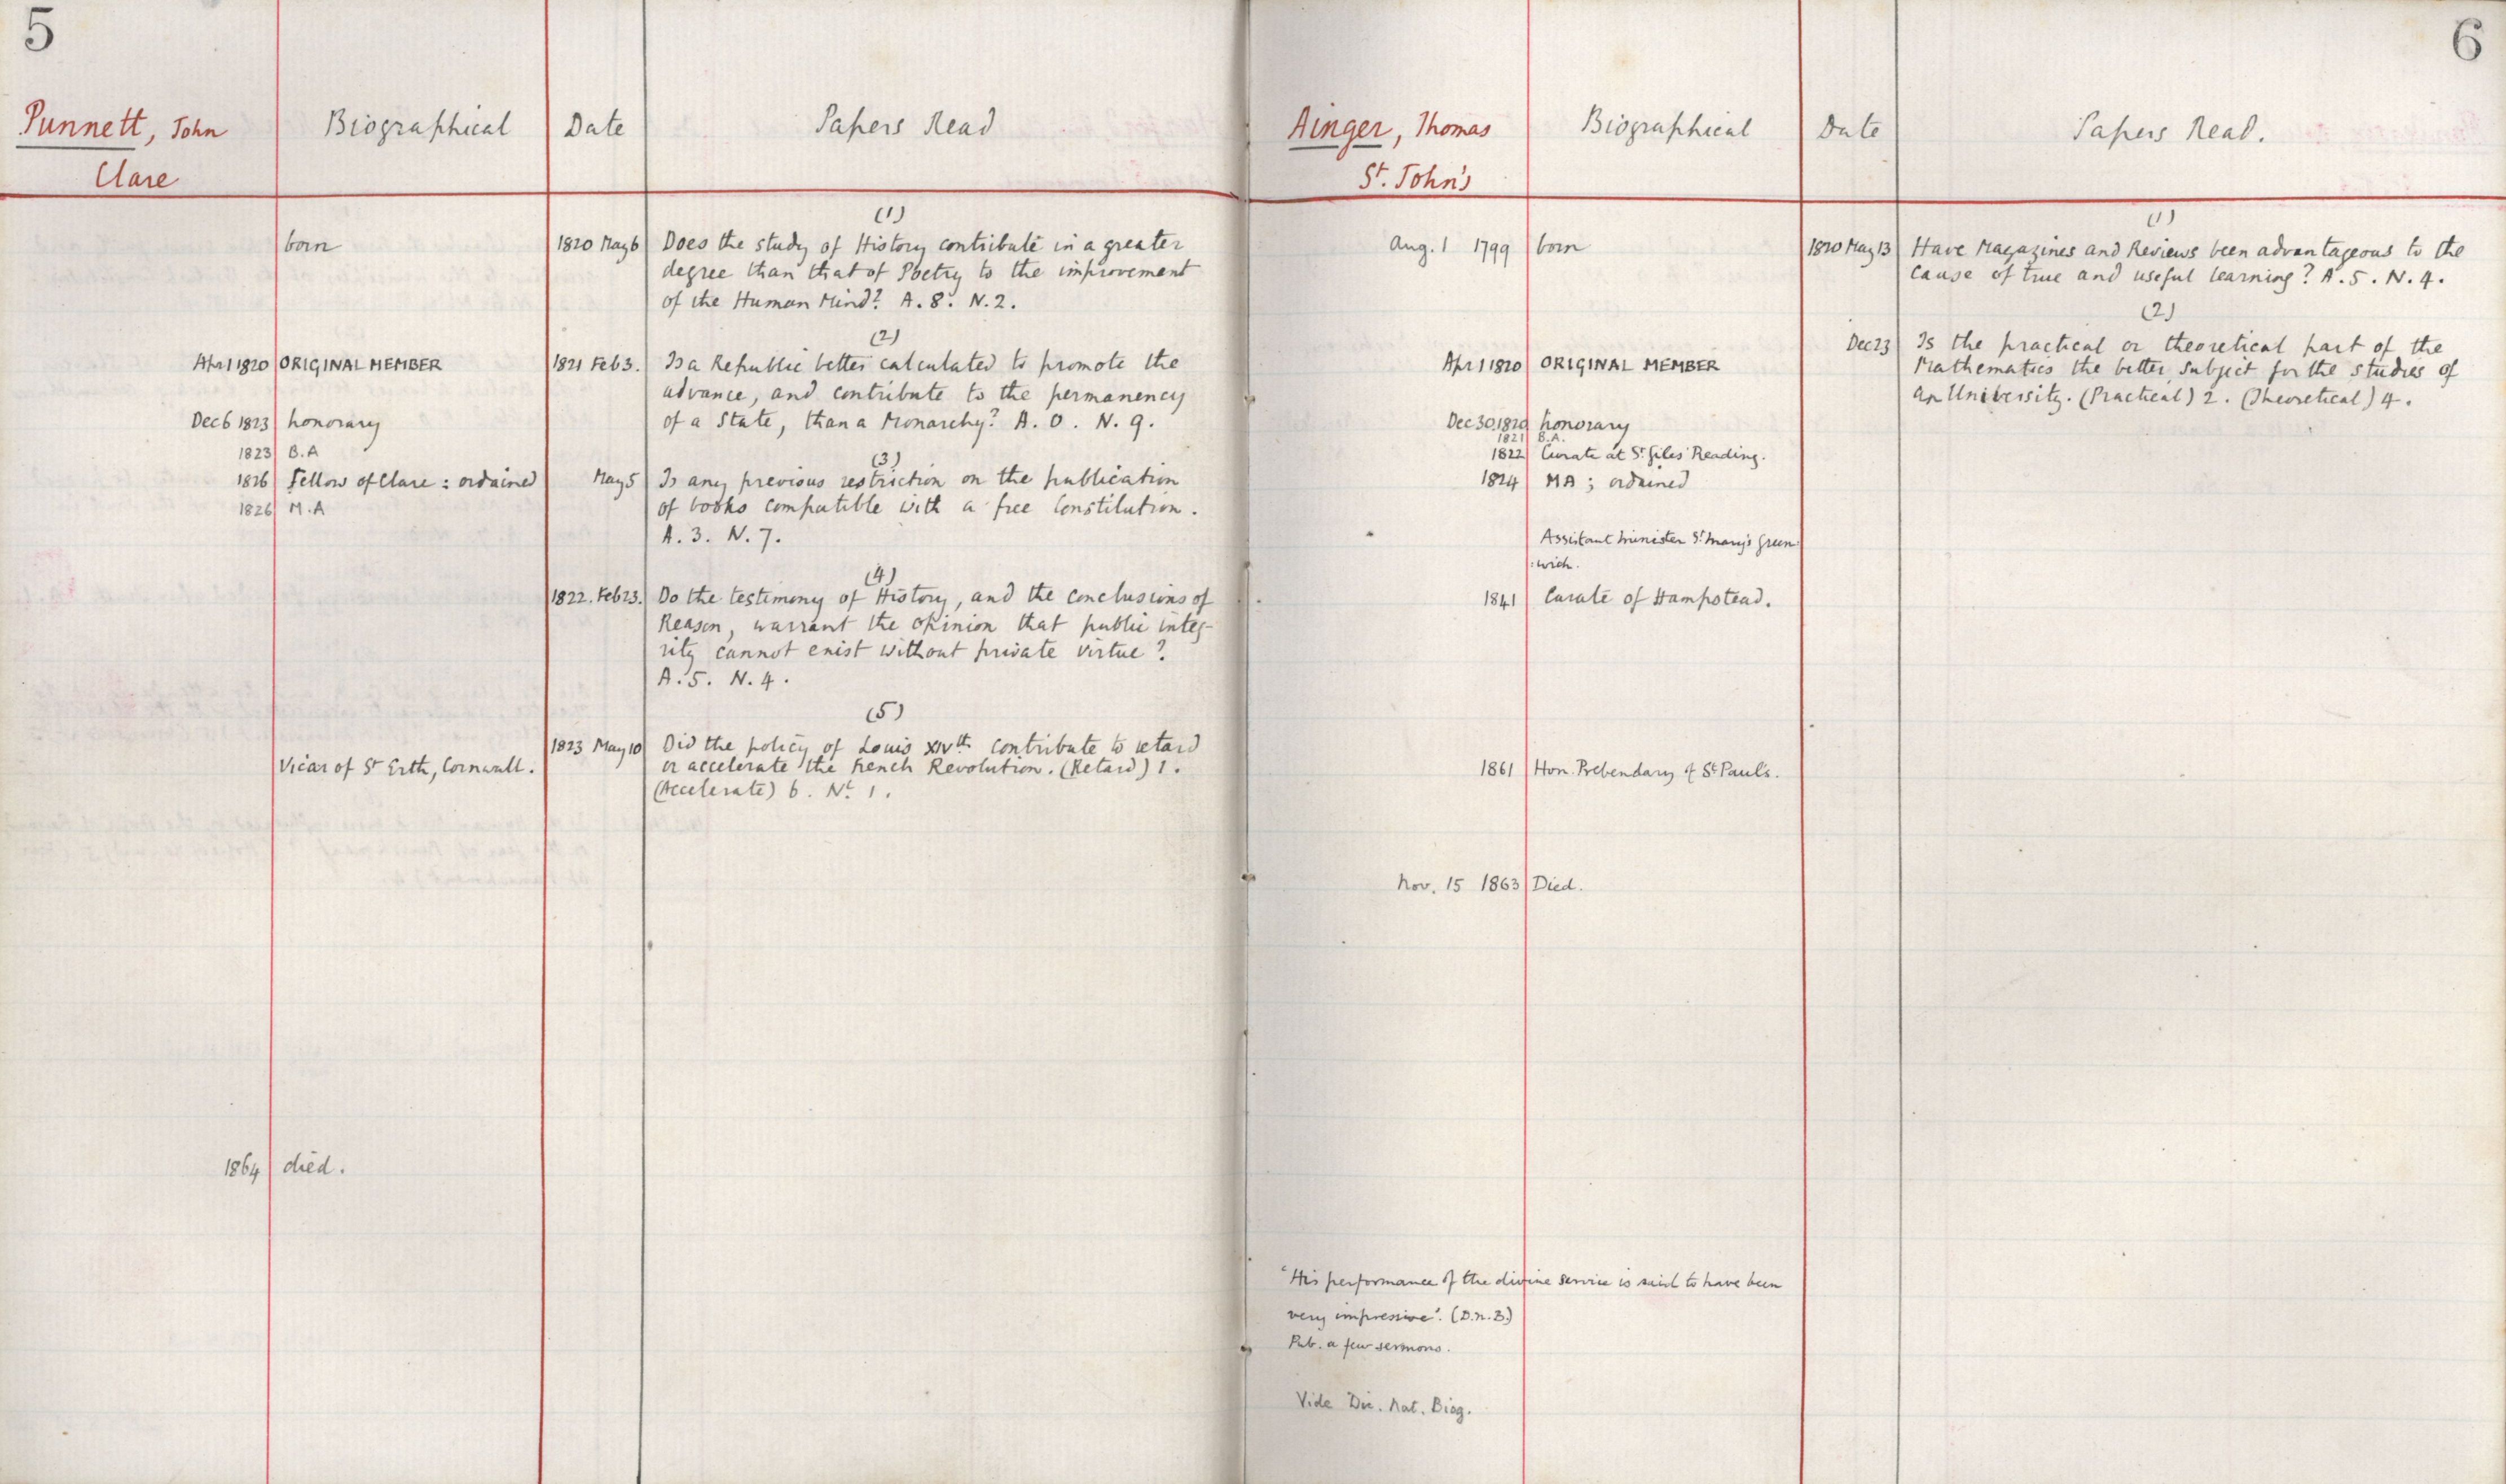 5
Punnett, John
Clare
Biographical
Date
Papers Read
born
Apr 1 1820 ORIGINAL MEMBER
Dec 6 1823 honorary
1823 B.A
1826 Fellow of Clare : ordained
1826 M.A
Vicar of St Erth, Cornwall.
1864 died.
(1)
1820 May 6 Does the study of History contribute in a greater
degree than that of Poetry to the improvement
of the Human Mind? A. 8. N. 2.
(2)
1821 Feb 3. Is a Republic better calculated to promote the
advance, and contribute to the permanency
of a State, than a Monarchy? A. 0. N. 9.
(3)
May 5 Is any previous restriction on the publication
of books compatible with a free Constitution.
A. 3. N. 7.
(4)
1822. Feb 23. Do the testimony of History, and the conclusions of
Reason, warrant the opinion that public integ-
rity cannot exist without private virtue?
A. 5. N. 4.
(5)
1823 May 10 Did the policy of Louis XIVth contribute to retard
or accelerate the French Revolution. (Retard) 1.
(Accelerate) 6. Nt 1.
6
Ainger, Thomas
St. John's
Biographical
Date
Papers Read.
Aug. 1 1799 born
Apr 1 1820 ORIGINAL MEMBER
Dec 30 1820 honorary
1821 B.A.
1822 Curate at St. Giles Reading.
1824 MA ; ordained
Assistant Minister St. Mary's Green-
:wich.
1841 Curate of Hampstead.
1861 Hon. Prebendary of St Paul's.
Nov. 15 1863 Died.
'His performance of the divine service is said to have been
very impressive'. (D.N.B.)
Pub. a few sermons.
Vide Dic. Nat. Biog.
(1)
1820 May 13 Have Magazines and Reviews been advantageous to the
cause of true and useful learning? A. 5. N. 4.
(2)
Dec 23 Is the practical or theoretical part of the
Mathematics the better subject for the studies of
an University. (Practical) 2. (Theoretical) 4.